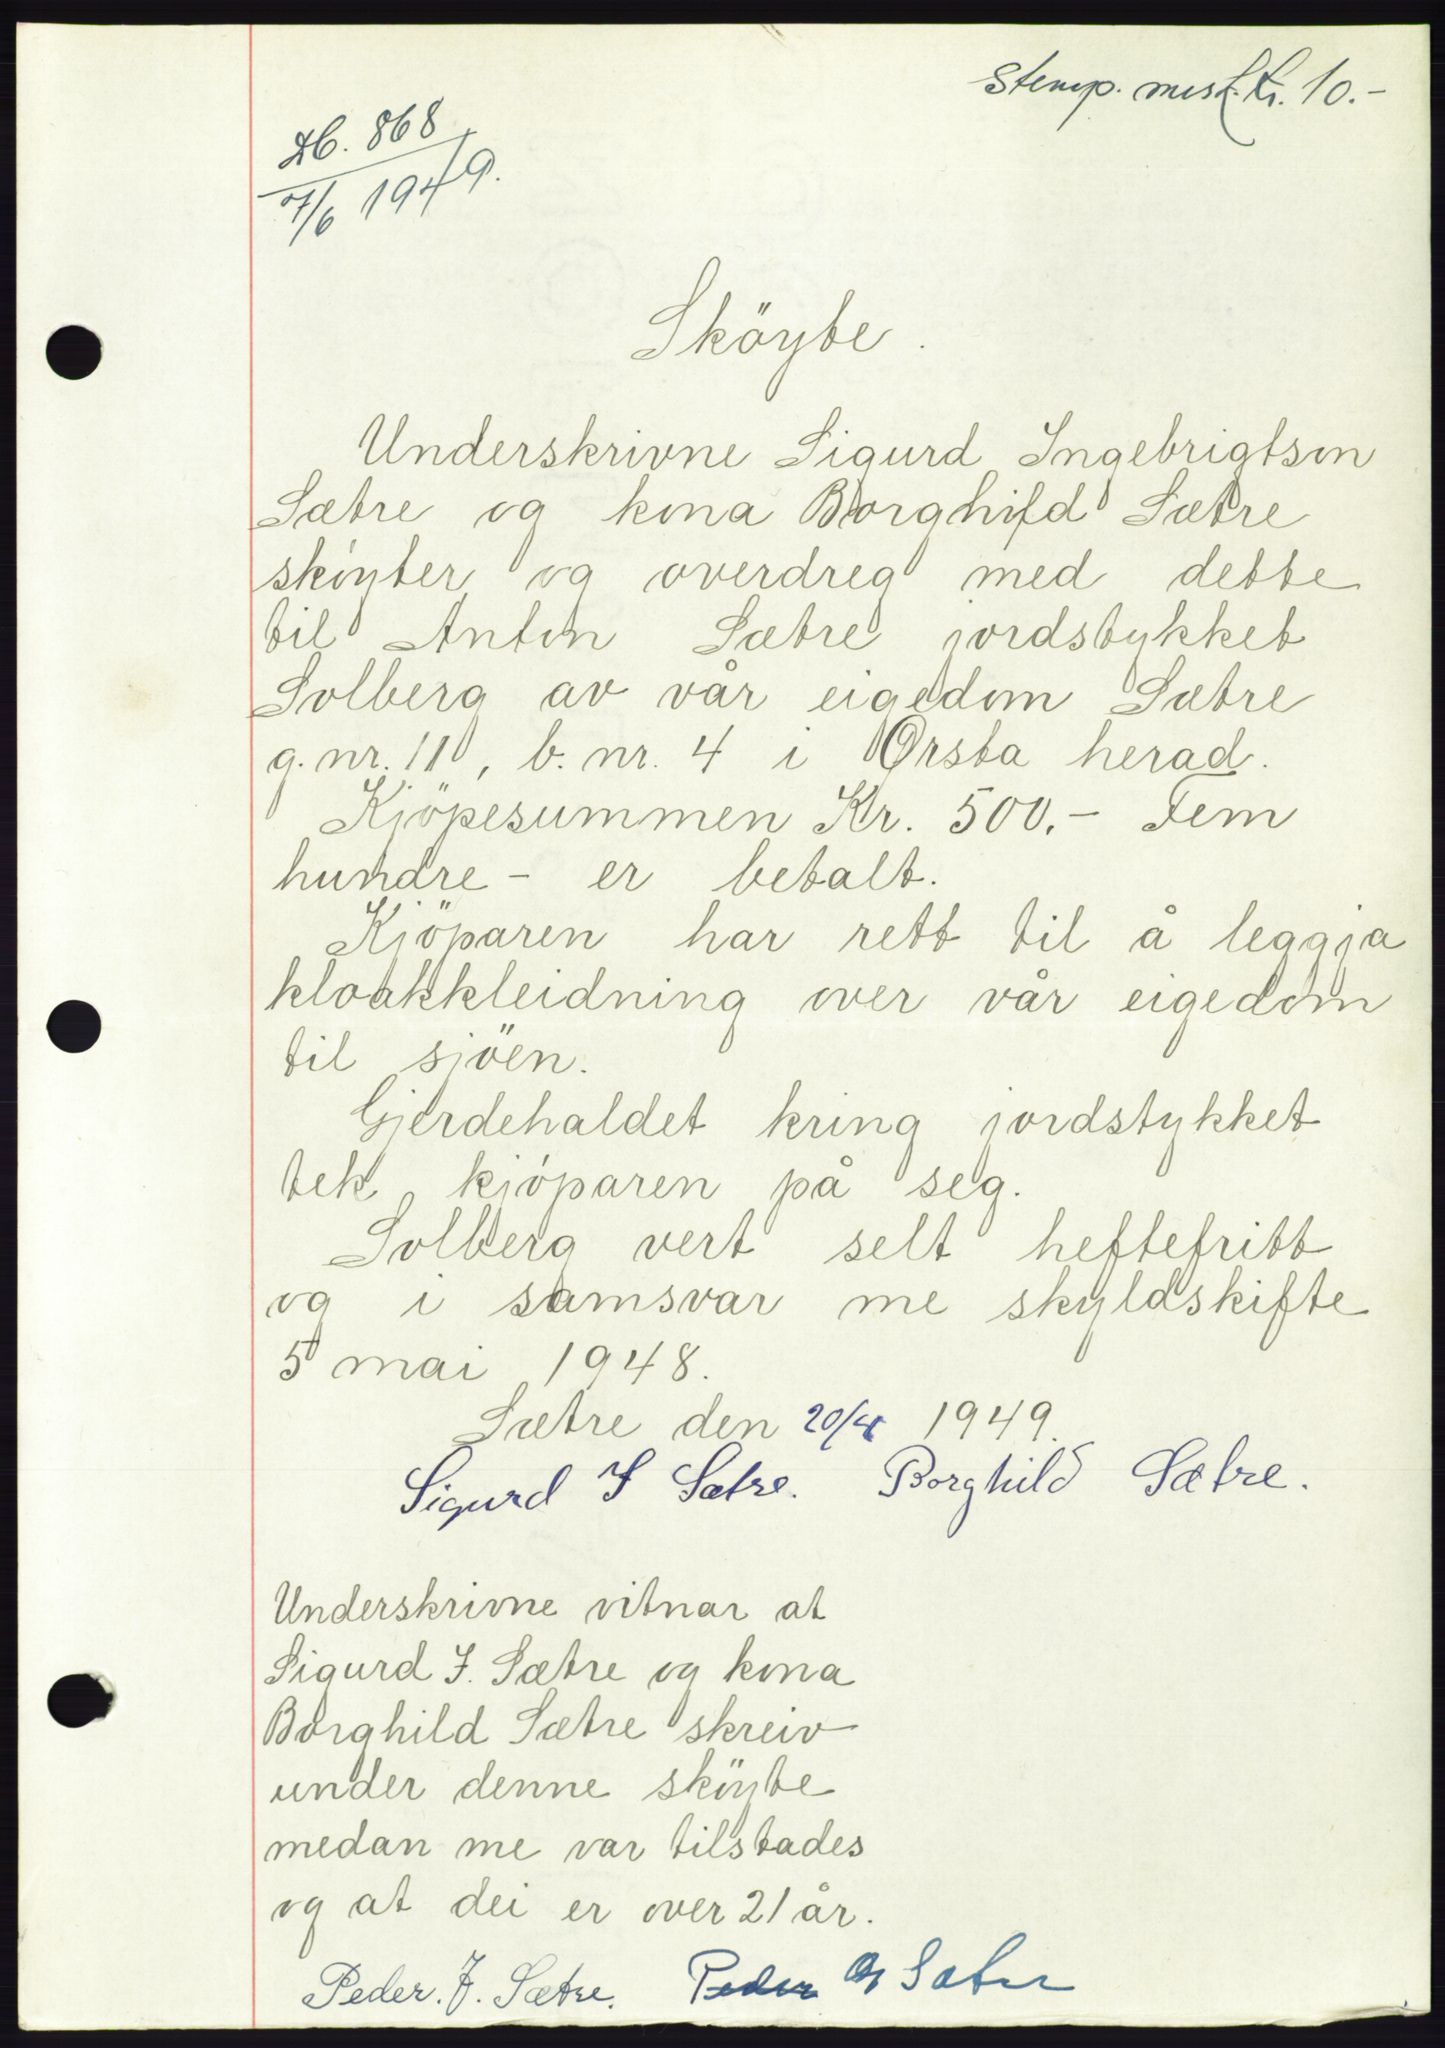 Stemp. merk. kr. 10.-
Db. 868
7/6 1949.
Sköyte.
Underskrivne Sigurd Ingebrigtson
Sætre og kona Borghild Sætre
sköyter og overdreg med dette
til Anton Sætre jordstykket
Solberg av vår eigedom Sætre
g.nr. 11, b. nr. 4 i Ørsta herad.
Kjöpesummen Kr. 500.- Fem
hundre - er betalt.
Kjöparen har rett til å leggja
kloakkleidning over vår eigedom
til sjöen.
Gjerdehaldet kring jordstykket
tek kjöparen på seg.
Solberg vert selt heftefritt
og i samsvar me skyldskifte
5 mai 1948.
Sætre den 20/4 1949.
Sigurd I Sætre. Borghild Sætre.
Underskrivne vitnar at
Sigurd I. Sætre og kona
Borghild Sætre skreiv
under denne sköyte
medan me var tilstades
og at dei er over 21 år.
Peder. J. Sætre. Peder Sætre